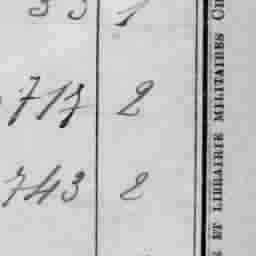 33 1
717 2
743 2
ET LIBRAIRIE MILITAIRES